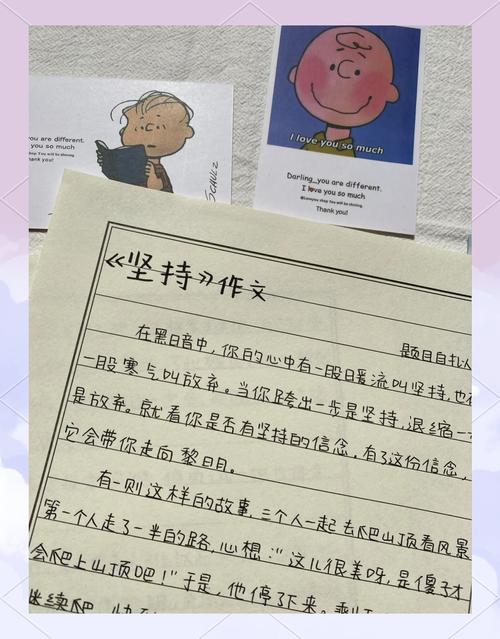 you are different.
you so much
Thank you!
SCHULZ
I love you so much
Darling,,you are different.
I love you so much
Thank you!
《坚持》作文
题目自拟
在黑暗中,你的心中有一股暖流叫坚持,也
一股寒气叫放弃。当你跨出一步是坚持,退缩一
是放弃。就看你是否有坚持的信念,有了这份信念,
它会带你走向黎明。
有一则这样的故事,三个人一起去爬山顶看风景
第一个人走了一半的路,心想:“这儿很美呀,是傻子才
会爬上山顶吧!”于是,他停了下来。剩
继续爬,快到